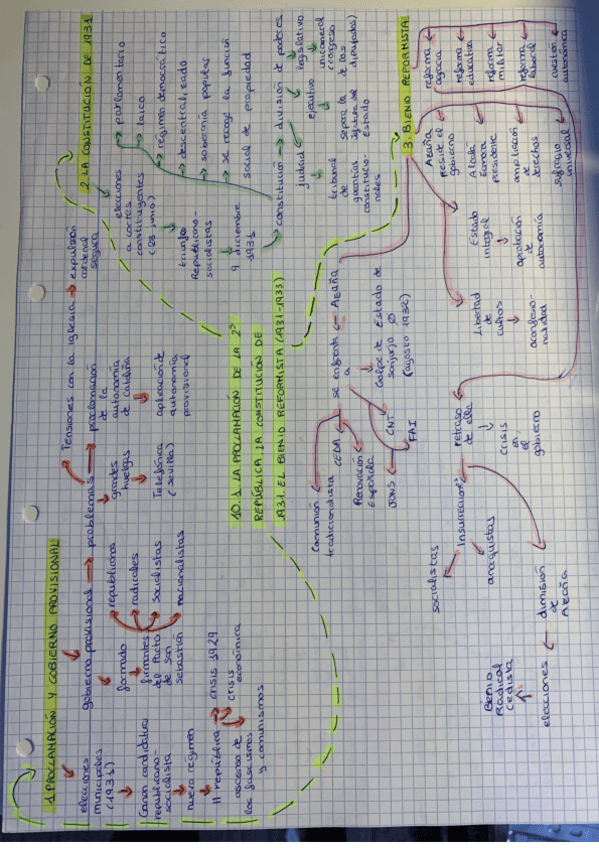 1. PROCLAMACIÓN Y GOBIERNO PROVISIONAL
elecciones
municipales
(1931)
Ganan candidatura
republicano-
socialista
nuevo régimen
II república
crisis 1929
crisis
económica
ascenso de
los fascismos
y comunismos
gobierno provisional
formado
firmantes
del Pacto
de San
Sebastián
republicanos
radicales
socialistas
nacionalistas
problemas
grandes
huelgas
Telefónica
(Sevilla)
Tensiones con la iglesia
expulsión
cardenal
Segura
proclamación
de la
autonomía
de Cataluña
aplicación de
autonomía
provisional
2. LA CONSTITUCIÓN DE 1931
elecciones
a cortes
constituyentes
(28 junio)
triunfo
Republicano
socialistas
9 diciembre
1931
parlamentario
laico
régimen democrático
descentralizado
soberanía popular
se recoge la función
social de propiedad
constitución
división de poderes
judicial
tribunal
de
garantías
constitucio-
nales
ejecutivo
separa la
iglesia del
Estado
legislativo
unicameral
congreso
de los
diputados)
10.1. LA PROCLAMACIÓN DE LA 2ª
REPÚBLICA, LA CONSTITUCIÓN DE
1931. EL BIENIO REFORMISTA (1931-1933)
3. BIENIO REFORMISTA
Azaña
preside el
gobierno
Alcalá
Zamora
presidente
ampliación
de
derechos
sufragio
universal
reforma
agraria
reforma
educativa
reforma
militar
reforma
laboral
cuestión
autonómica
Estado
integral
aprobación
de
autonomía
Libertad
de
cultos
aconfesio-
nalidad
Azaña
se enfrenta
a
Golpe de Estado de
Sanjurjo
(agosto 1932)
CEDA
Comunión
tradicionalista
Renovación
Española
JONS
CNT
FAI
retraso
de ella
crisis
en
el
gobierno
Insurrecciones
socialistas
anarquistas
dimisión
de
Azaña
elecciones
Bienio
Radical
Cedista